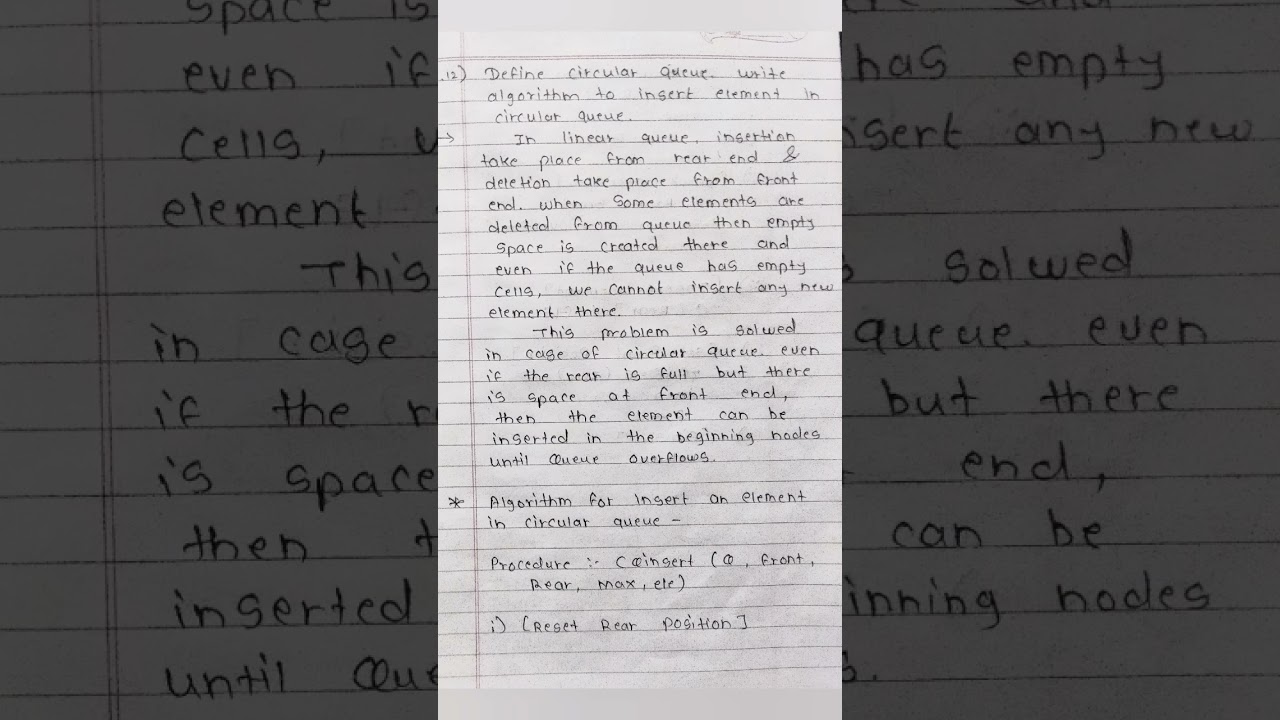 12) Define circular queue. write
algorithm to insert element in
circular queue.
→ In linear queue, insertion
take place from rear end &
deletion take place from front
end. when some elements are
deleted from queue then empty
space is created there and
even if the queue has empty
cells, we cannot insert any new
element there.
This problem is solwed
in case of circular queue. even
if the rear is full but there
is space at front end,
then the element can be
inserted in the beginning nodes
until Queue overflows.
* Algorithm for insert an element
in circular queue -
Procedure :- CQinsert (Q, front,
Rear, max, ele)
i) [Reset Rear position]